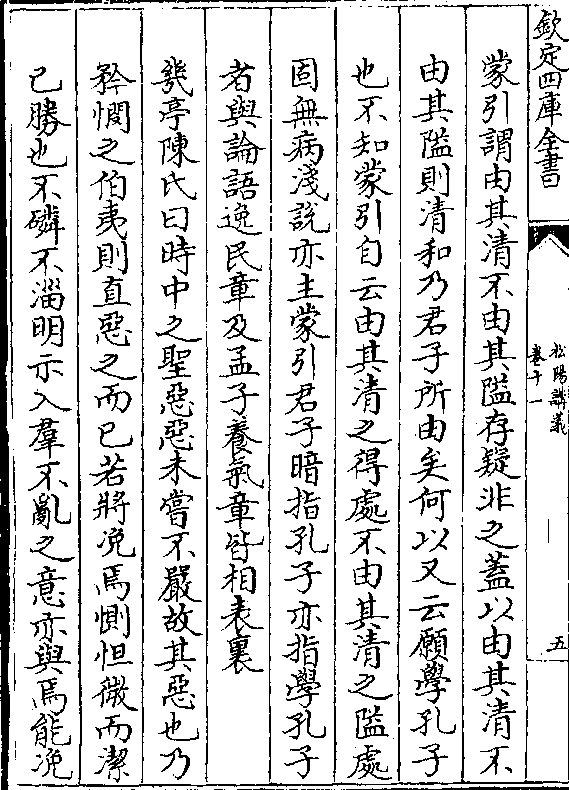 欽定四庫全書
松陽講義
卷十一
五
蒙引謂由其清不由其隘存疑非之蓋以由其清不
由其隘則清和乃君子所由矣何以又云願學孔子
也不知蒙引自云由其清之得處不由其清之隘處
固無病淺說亦主蒙引君子暗指孔子亦指學孔子
者與論語逸民章及孟子養氣章皆相表裏
幾亭陳氏曰時中之聖惡惡未嘗不嚴故其惡也乃
矜憫之伯夷則直惡之而已若將凂焉惻怛微而潔
已勝也不磷不淄明示入羣不亂之意亦與焉能凂